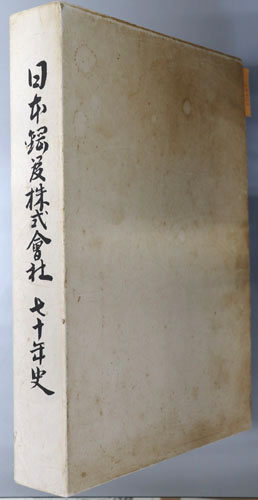 日本鋼管株式會社 七十年史